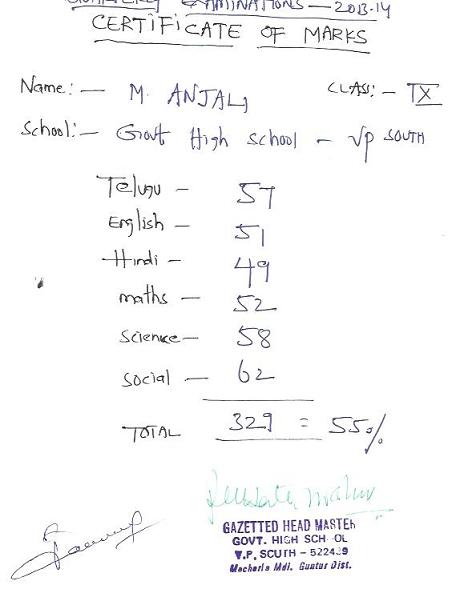 QUARTERLY EXAMINATIONS — 2013-14
CERTIFICATE OF MARKS
Name:— M. ANJALI CLASS:— IX
School:— Govt High school — VP SOUTH
Telugu — 57
English — 51
Hindi — 49
maths — 52
science — 58
social — 62
TOTAL 329 = 55%
GAZETTED HEAD MASTER
GOVT. HIGH SCHOOL
V.P. SOUTH – 522439
Macherla Mdl. Guntur Dist.